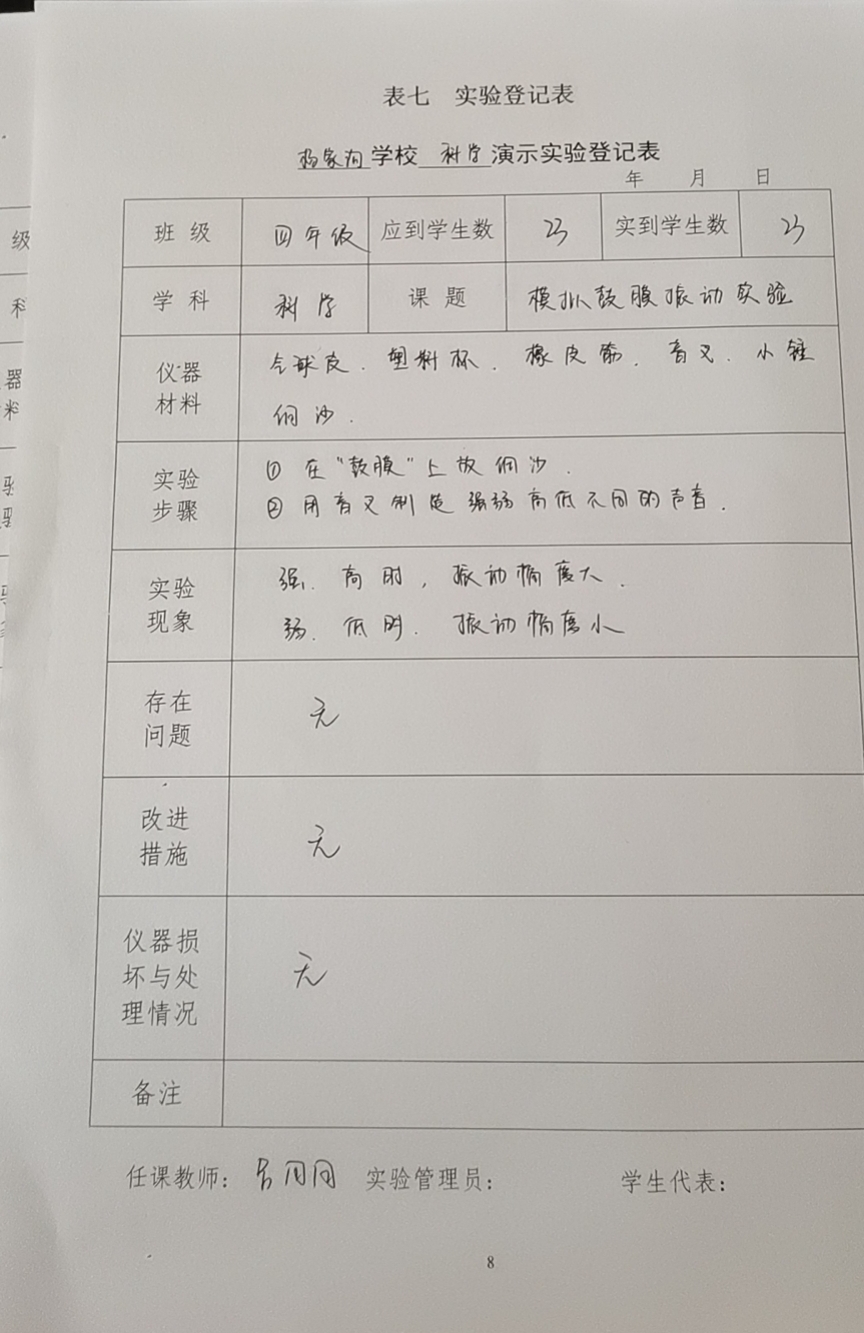 表七 实验登记表
杨家沟学校 科学 演示实验登记表
年 月 日
班 级 四年级 应到学生数 23 实到学生数 23
学 科 科学 课 题 模拟鼓膜振动实验
仪器
材料
气球皮、塑料杯、橡皮筋、音叉、小锤
细沙.
实验
步骤
① 在“鼓膜”上放细沙.
② 用音叉制造强弱高低不同的声音.
实验
现象
强、高时,振动幅度大.
弱、低时、振动幅度小
存在
问题
无
改进
措施
无
仪器损
坏与处
理情况
无
备注
任课教师: 实验管理员: 学生代表:
8
级
科
器
料
验
骤